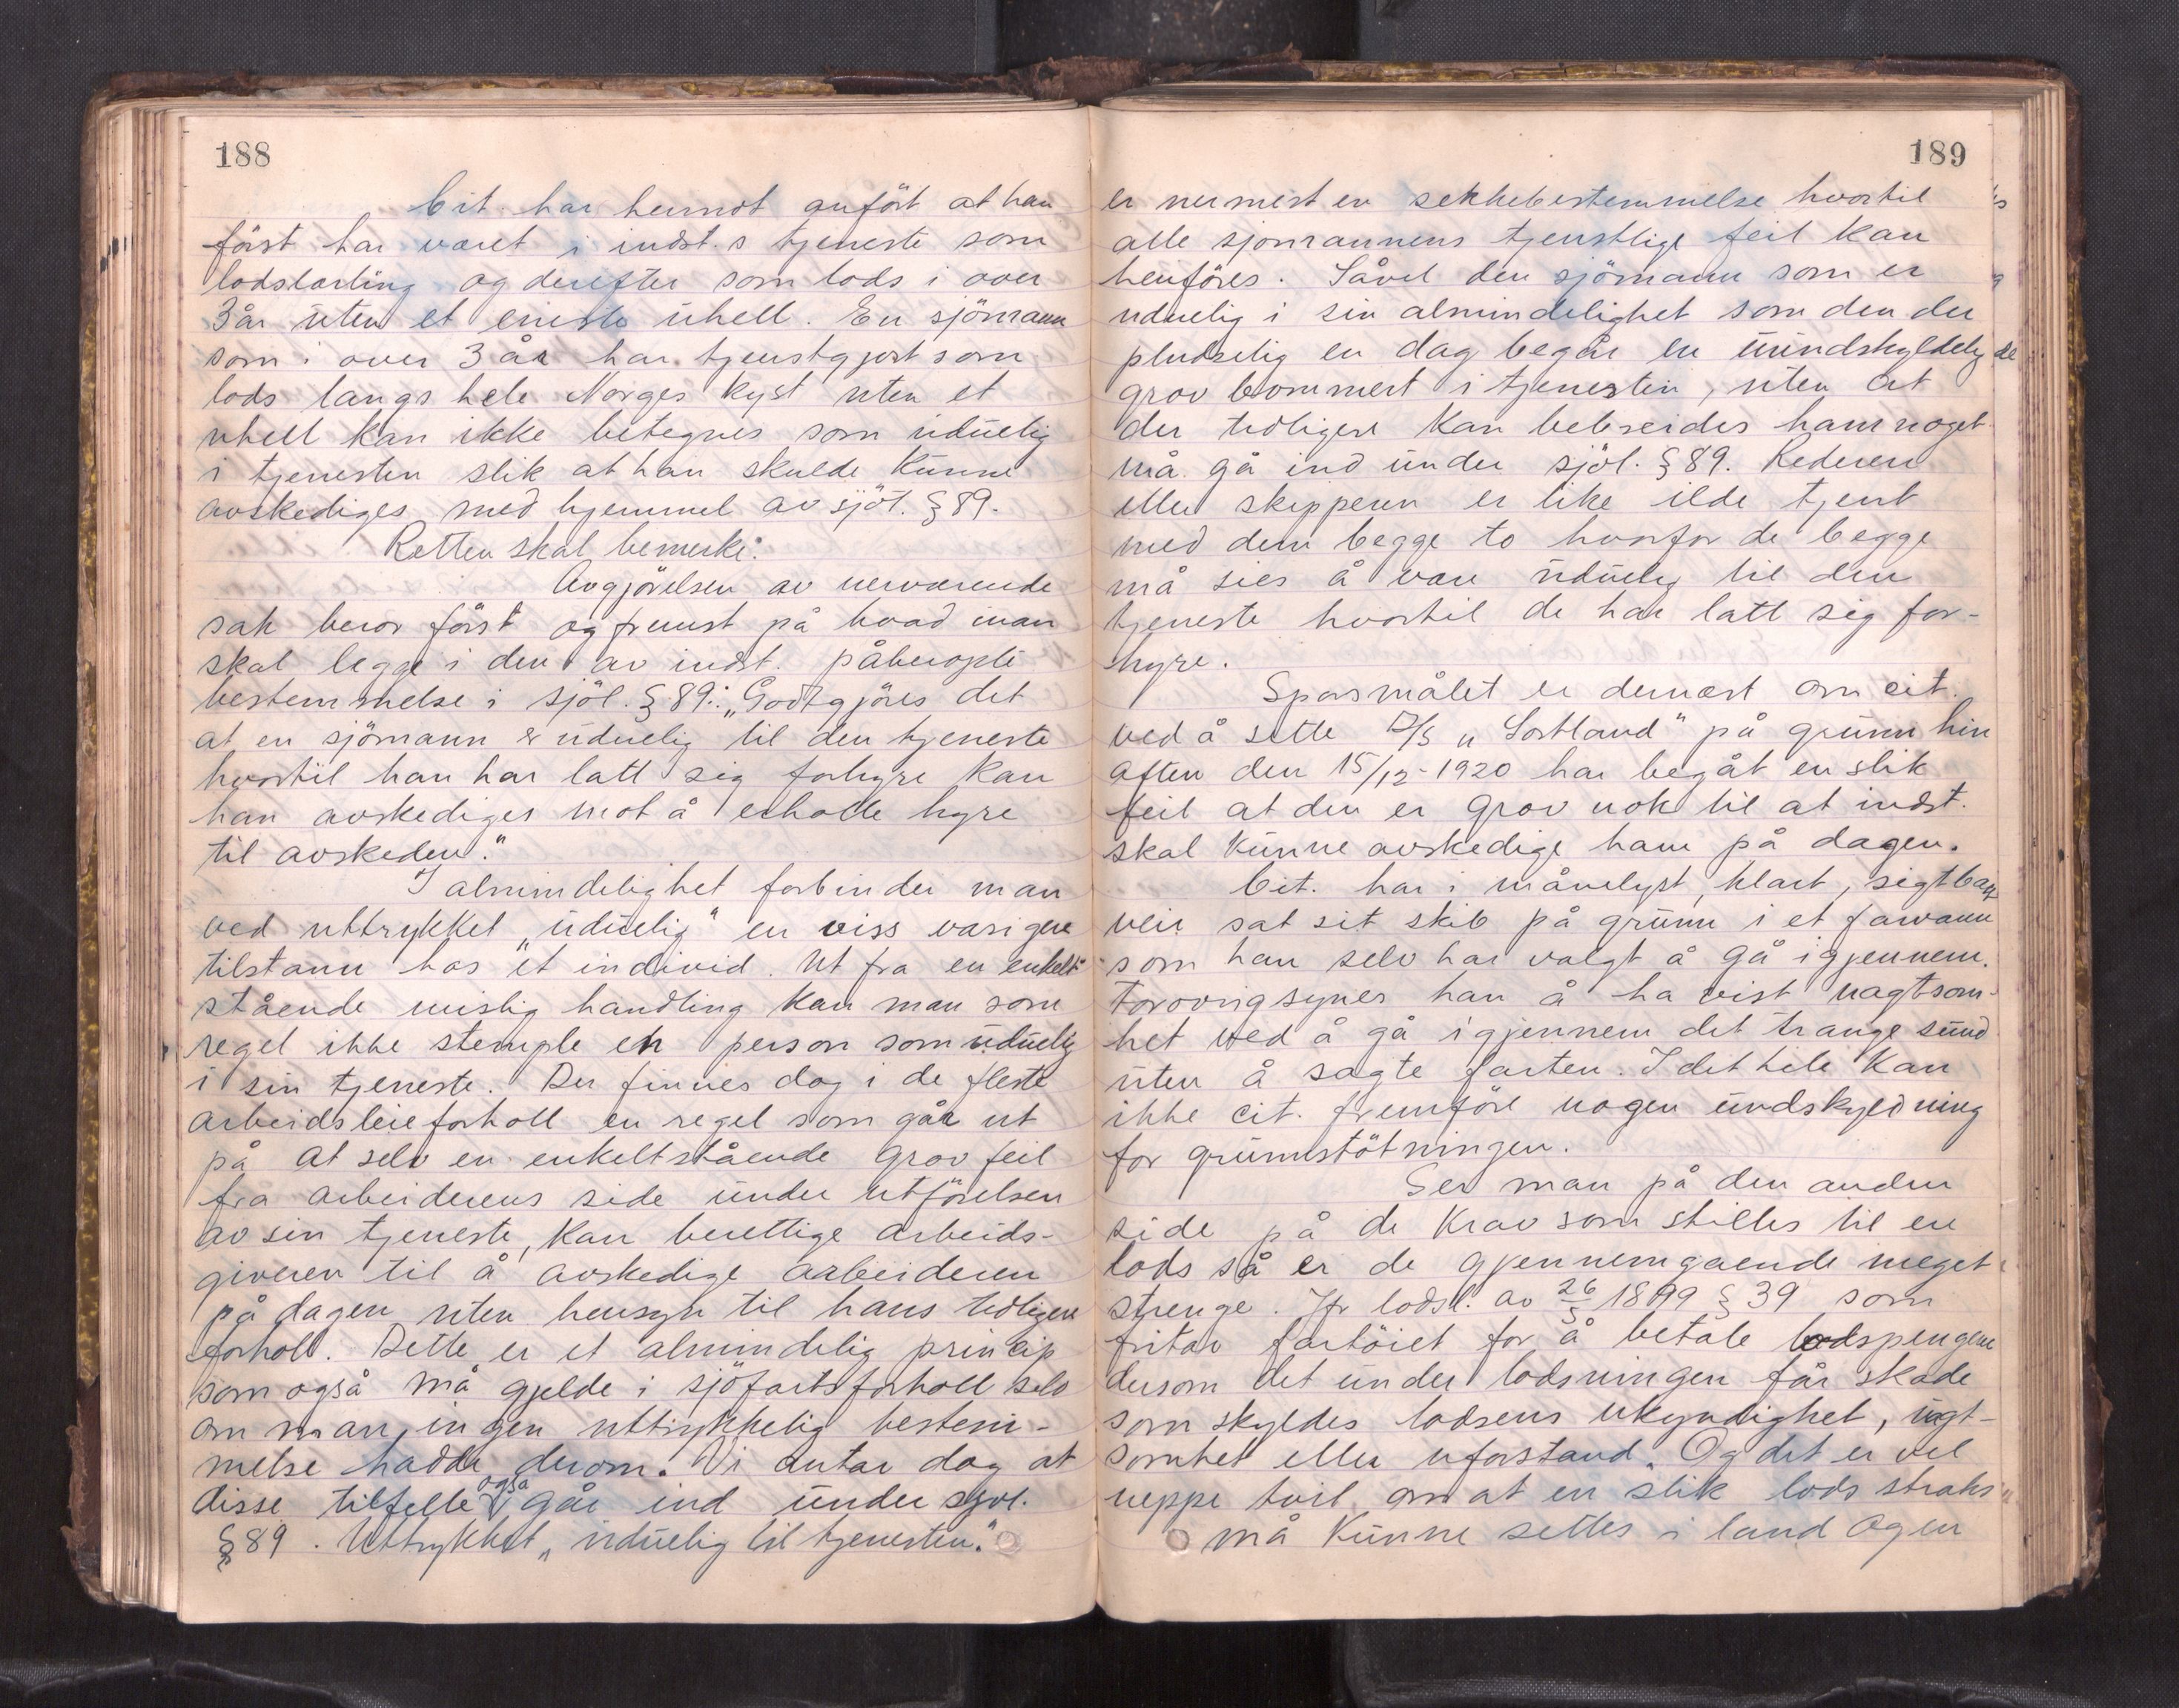 188
Cit. har herimot anfört at han
först har været i indst.s tjeneste som
lodslærling og derefter som lods i over
3 år uten et eneste uhell. En sjömann
som i over 3 år har tjenstgjort som
lods langs hele Norges kyst uten et
uhell kan ikke betegnes som uduelig
i tjenesten slik at han skulde kunne
avskediges med hjemmel av sjöl. § 89.
Retten skal bemerke:
Avgjörelsen av nærværende
sak beror först og fremst på hvad man
skal legge i den av indst. påberopte
bestemmelse i sjöl. § 89: „Godtgjöres det
at en sjömann er uduelig til den tjeneste
hvortil han har latt sig forhyre kan
han avskediges mot å erholde hyre
til avskeden."
I almindelighet forbinder man
ved uttrykket „uduelig" en viss varigere
tilstann hos et individ. Ut fra en enkelt
stående mislig handling kan man som
regel ikke stemple en person som uduelig
i sin tjeneste. Der finnes dog i de fleste
arbeidsleieforholl en regel som går ut
på at selv en enkeltstående grov feil
fra arbeiderens side under utförelsen
av sin tjeneste, kan berettige arbeids-
giveren til å avskedige arbeideren
på dagen uten hensyn til hans tidligere
forhold. Dette er et almindelig princip
som også må gjelde i sjöfartsforholl selv
om man ingen uttrykkelig bestem-
melse hadde derom. Vi antar dog at
disse tilfelle også går ind under sjøl.
§ 89. Uttrykket „uduelig til tjenesten."
189
er nermest en sekkebestemmelse hvortil
alle sjømannens tjenstlige feil kan
henföres. Såvel den sjömann som er
uduelig i sin almindelighet som den der
pludselig en dag begår en uundskyldelig
grov bommert i tjenesten, uten at
der tidligere kan bebreides ham noget
må gå ind under sjöl. § 89. Rederen
eller skipperen er like ilde tjent
med dem begge to hvorfor de begge
må sies å være uduelig til den
tjeneste hvortil de har latt sig for-
hyre.
Spørsmålet er dernæst om cit.
ved å sette D/S „Sortland" på grunn hin
aften den 15/12-1920 har begåt en slik
feil at den er grov nok til at indst.
skal kunne avskedige ham på dagen.
Cit. har i månelyst, klart, sigtbart
veir sat sit skib på grunn i et farvann
som han selv har valgt å gå igjennem.
Forøvrig synes han å ha vist uagtsom-
het ved å gå igjennem det trange sund
uten å sagte farten. I det hele kan
ikke cit. fremföre nogen undskyldning
for grunnstötningen.
Ser man på den anden
side på de krav som stilles til en
lods så er de gjennemgaende meget
strenge. Jfr lodsl. av 26/5 1899 § 39 som
fritar fartöiet for å betale lodspengene
dersom det under lodsningen får skade
som skyldes lodsens ukyndighet, uagt-
somhet eller uforstand. Og det er vel
neppe tvil om at en slik lods straks
må kunne settes i land og en